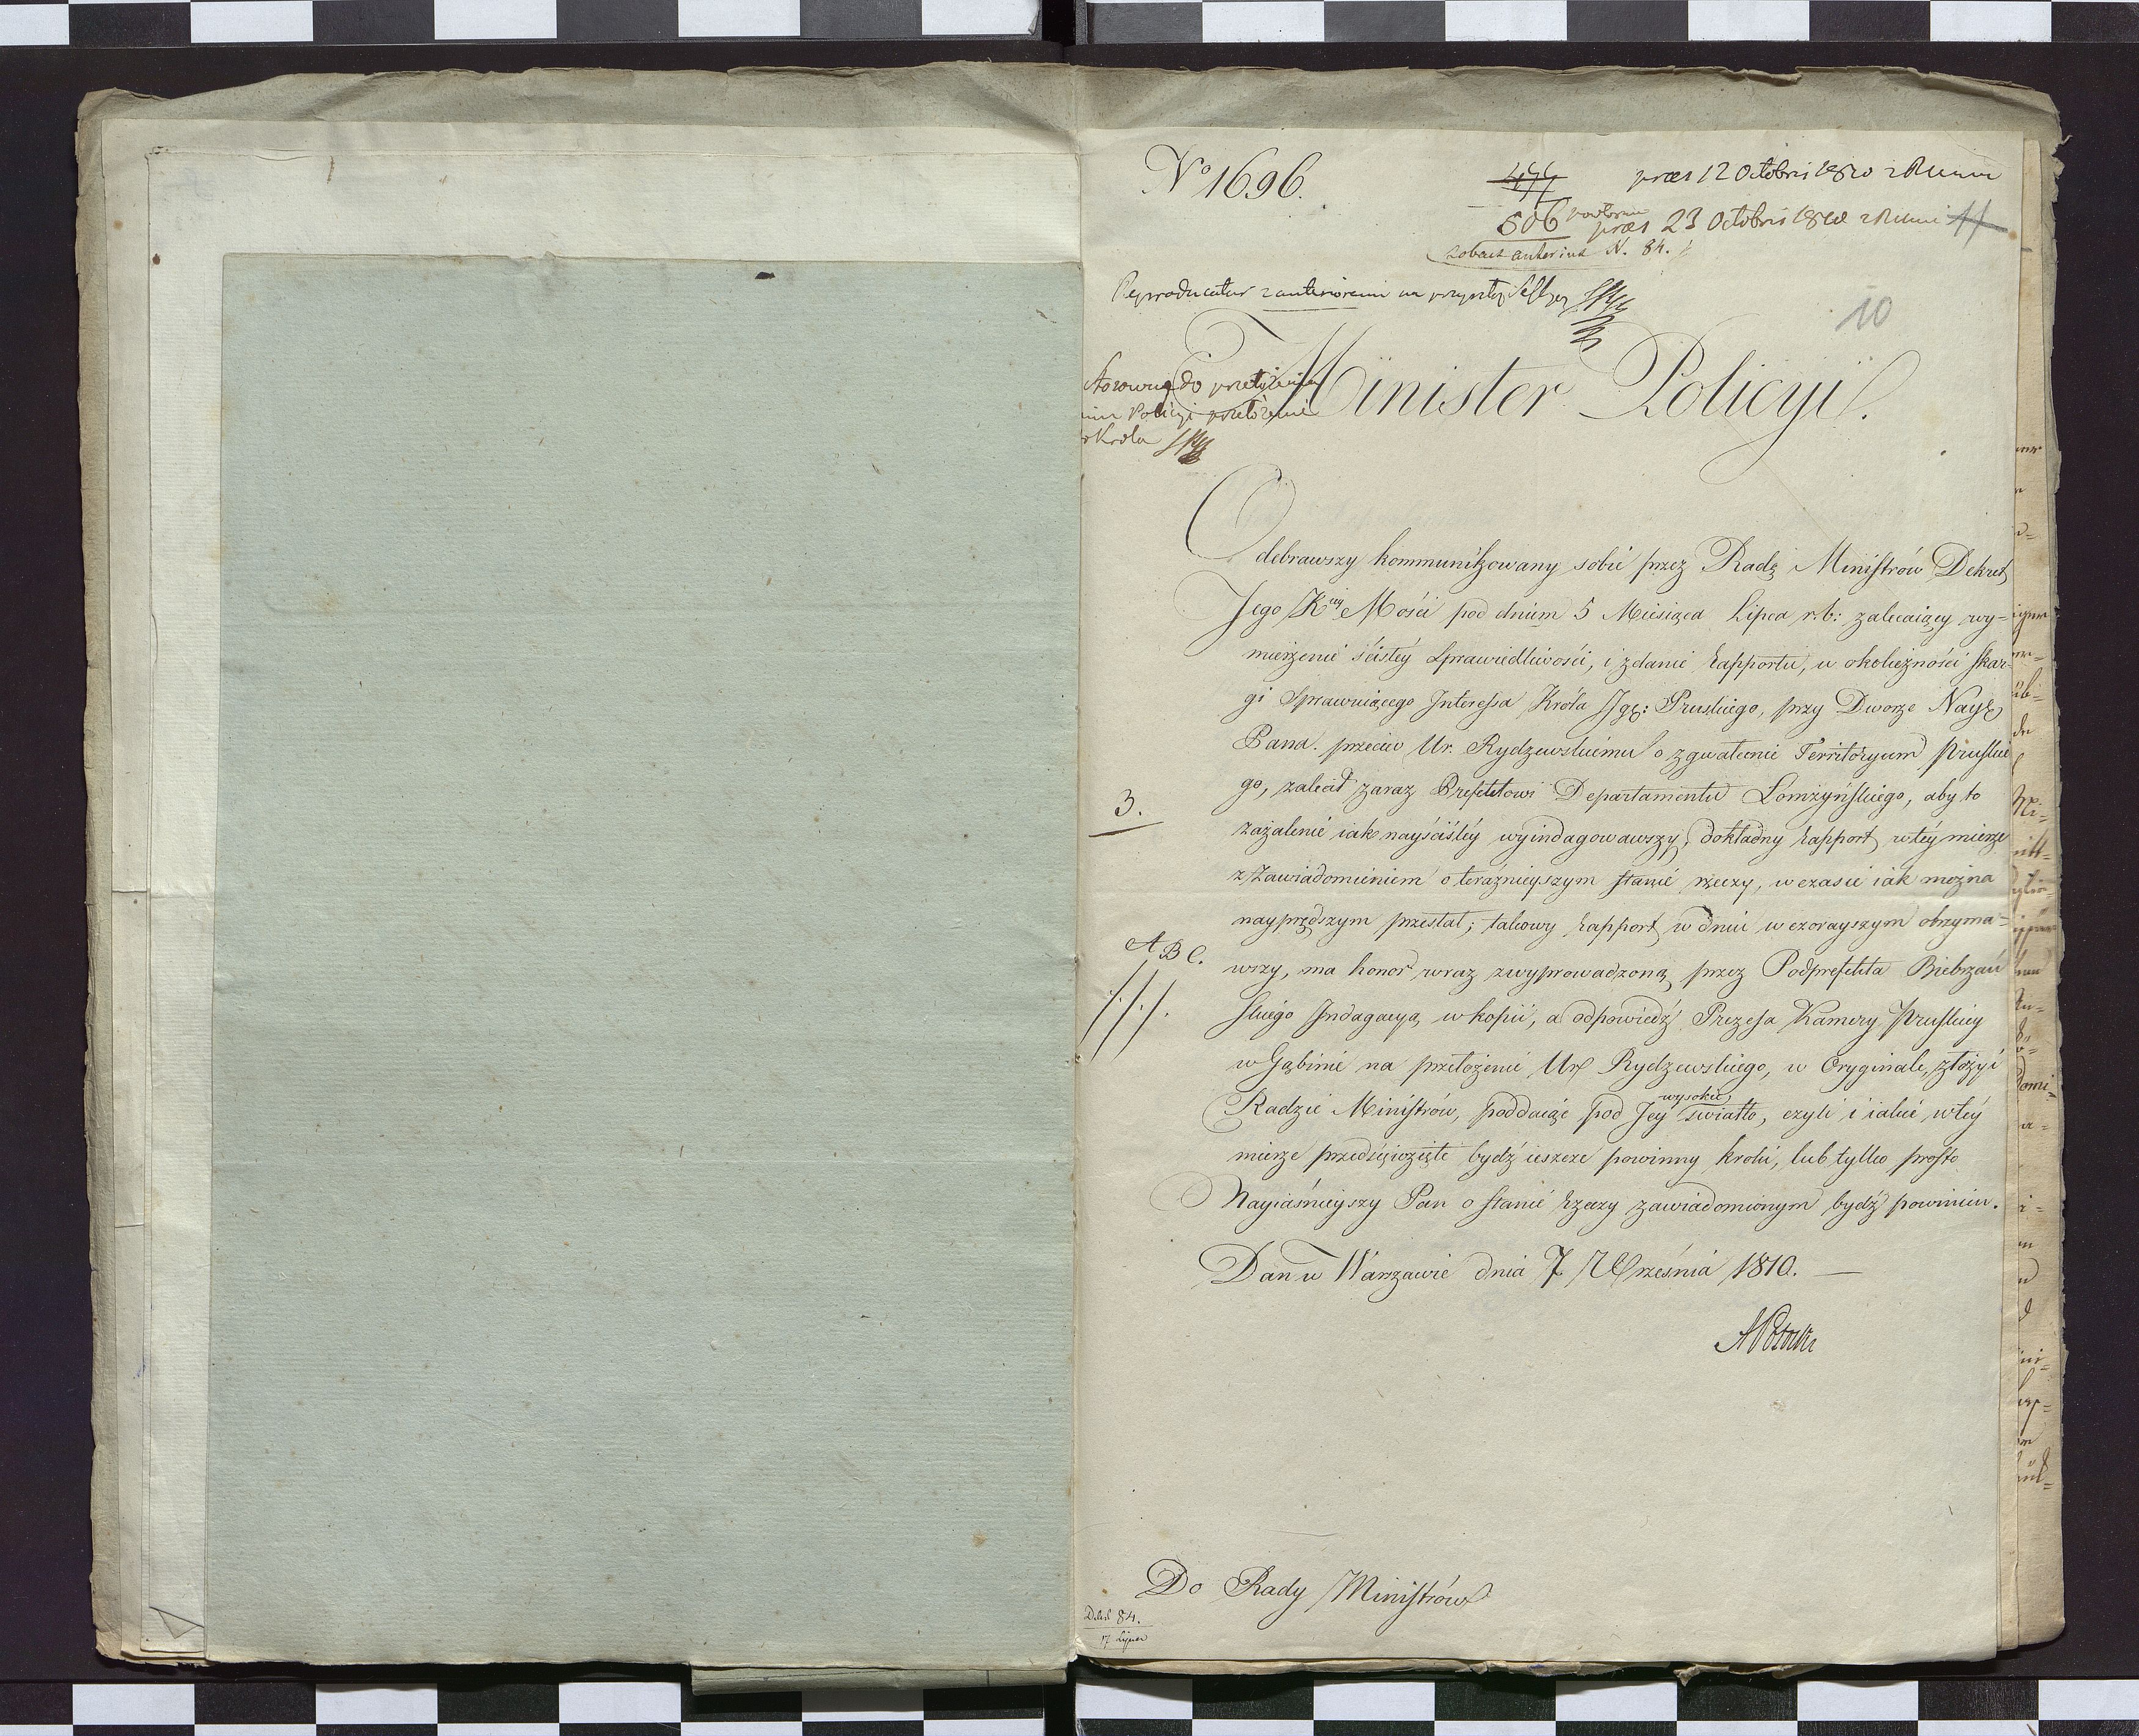 No 1696.
præs 12 Octobris 1810 z Ruin
506 powtórnie præs 23 Octobris 1810 11
zobacz anterius N. 84.
Reproducatur z anterioremi na przyszłej
10
do przełożenia
Minister Policyi.
min Policyi przełożenie
Króla
Odebrawszy kommunikowany sobie przez Radę Ministrów Dekret
Jego Kiey Mości pod dniem 5 Miesiąca Lipca r. b: zalecaiący wy-
mierzenie ścisłey Sprawiedliwości, i zdanie Rapportu, w okoliczności skar-
gi Sprawuiącego Interessa Króla Jgc: Pruskiego, przy Dworze Nayj:
Pana. przeciw Ur. Rydzewskiemu o zgwałcenie Territoryum Pruskie
go, zalecił zaraz Prefektowi Departamentu Łomżyńskiego, aby to
3.
zażalenie iak nayściśley wyindagowawszy, dokładny Rapport w tey mierze
z Zawiadomieniem o teraznieyszym stanie rzeczy, w czasie iak można
nayprędszym przesłał; takowy Rapport w dniu wczorayszym otrzyma-
A B C.
wszy, ma honor wraz z wyprowadzoną przez Podprefekta Biebrzań
skiego Indagacyą w kopii, a odpowiedź Prezesa Kamery Pruskiey
w Gąbinie na przełożenie Ur Rydzewskiego, w Oryginale, złożyć
Radzie Ministrów, poddaiąc pod Jey wysokie światło, czyli i iakie w tey
mierze przedsięwzięte bydź ieszcze powinny kroki, lub tylko prosto
Nayiaśnieyszy Pan o stanie Rzeczy zawiadomionym bydź powinien.
Dan w Warszawie dnia 7 Września 1810. —
APotocki
Do Rady Ministrów
84.
17 Lipca